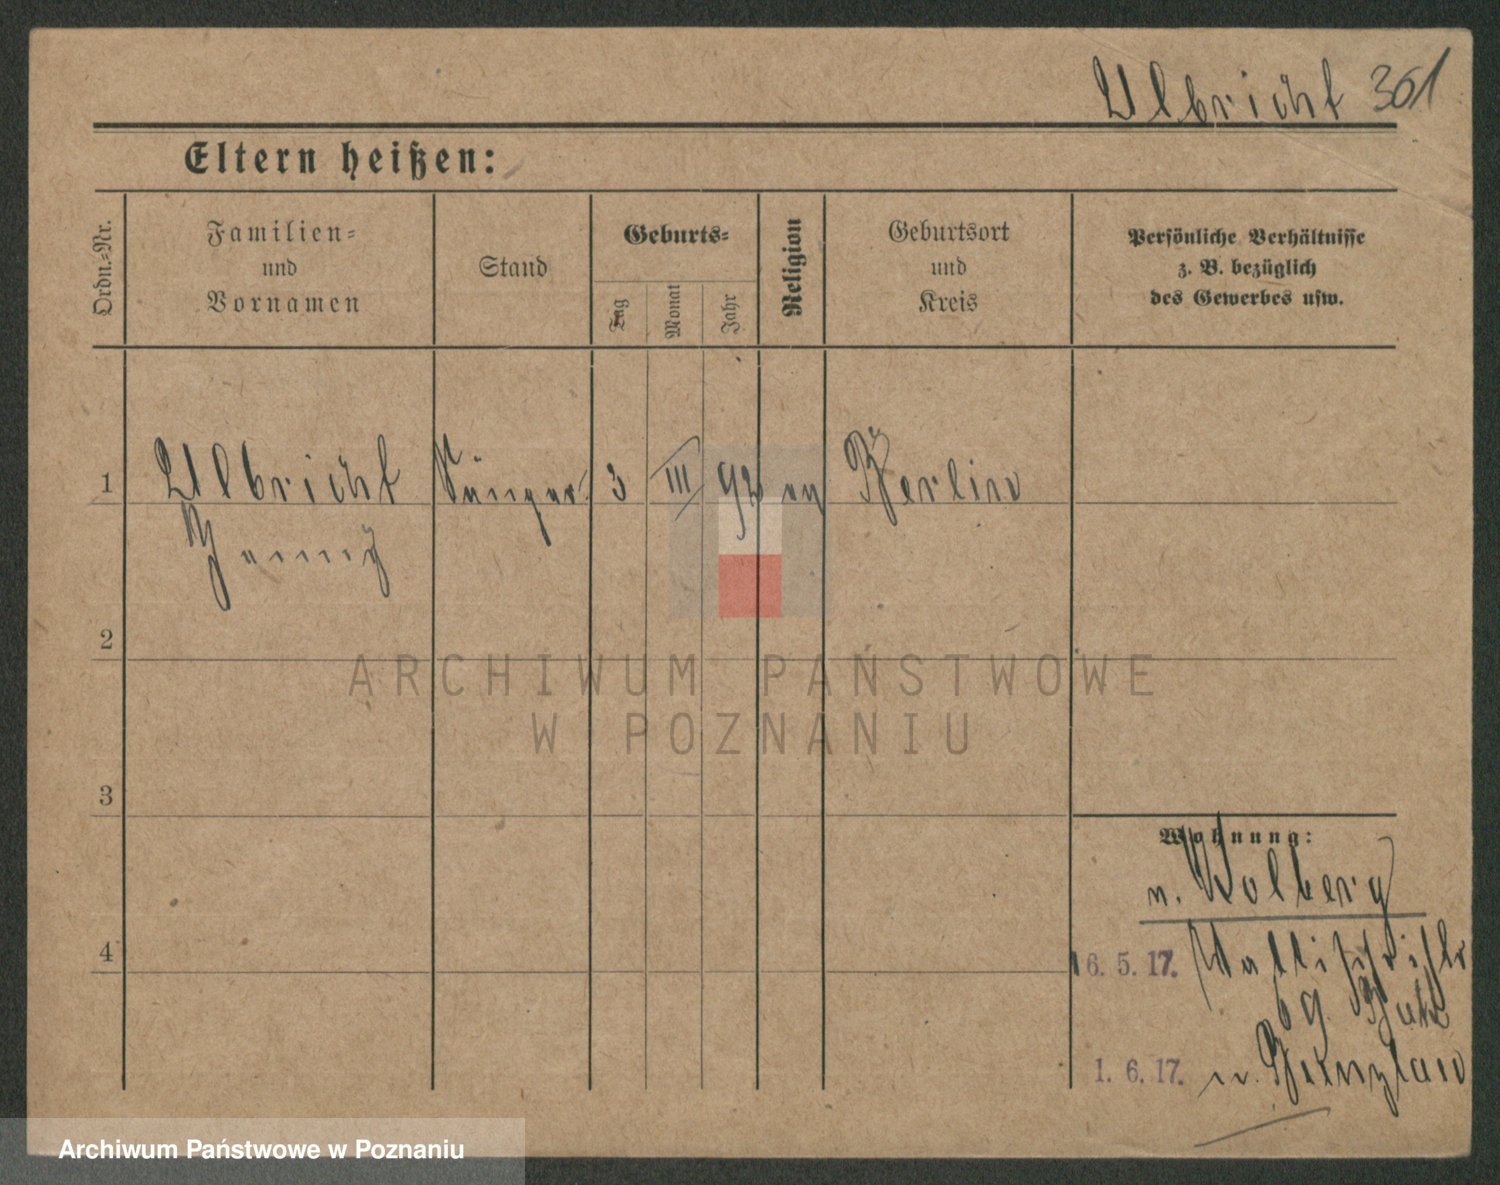 Ulbricht 361
Eltern heißen:
Ordn.-Nr.
Familien-
und
Vornamen
Stand
Geburts-
Tag
Monat
Jahr
Religion
Geburtsort
und
Kreis
Persönliche Verhältnisse
z. B. bezüglich
des Gewerbes usw.
1 Ulbricht Sänger 3 III 92 ev Berlin
2
3
4
Wohnung:
n. Kolberg
16. 5. 17.
1. 6. 17. n.
ARCHIWUM PAŃSTWOWE
W POZNANIU
Archiwum Państwowe w Poznaniu